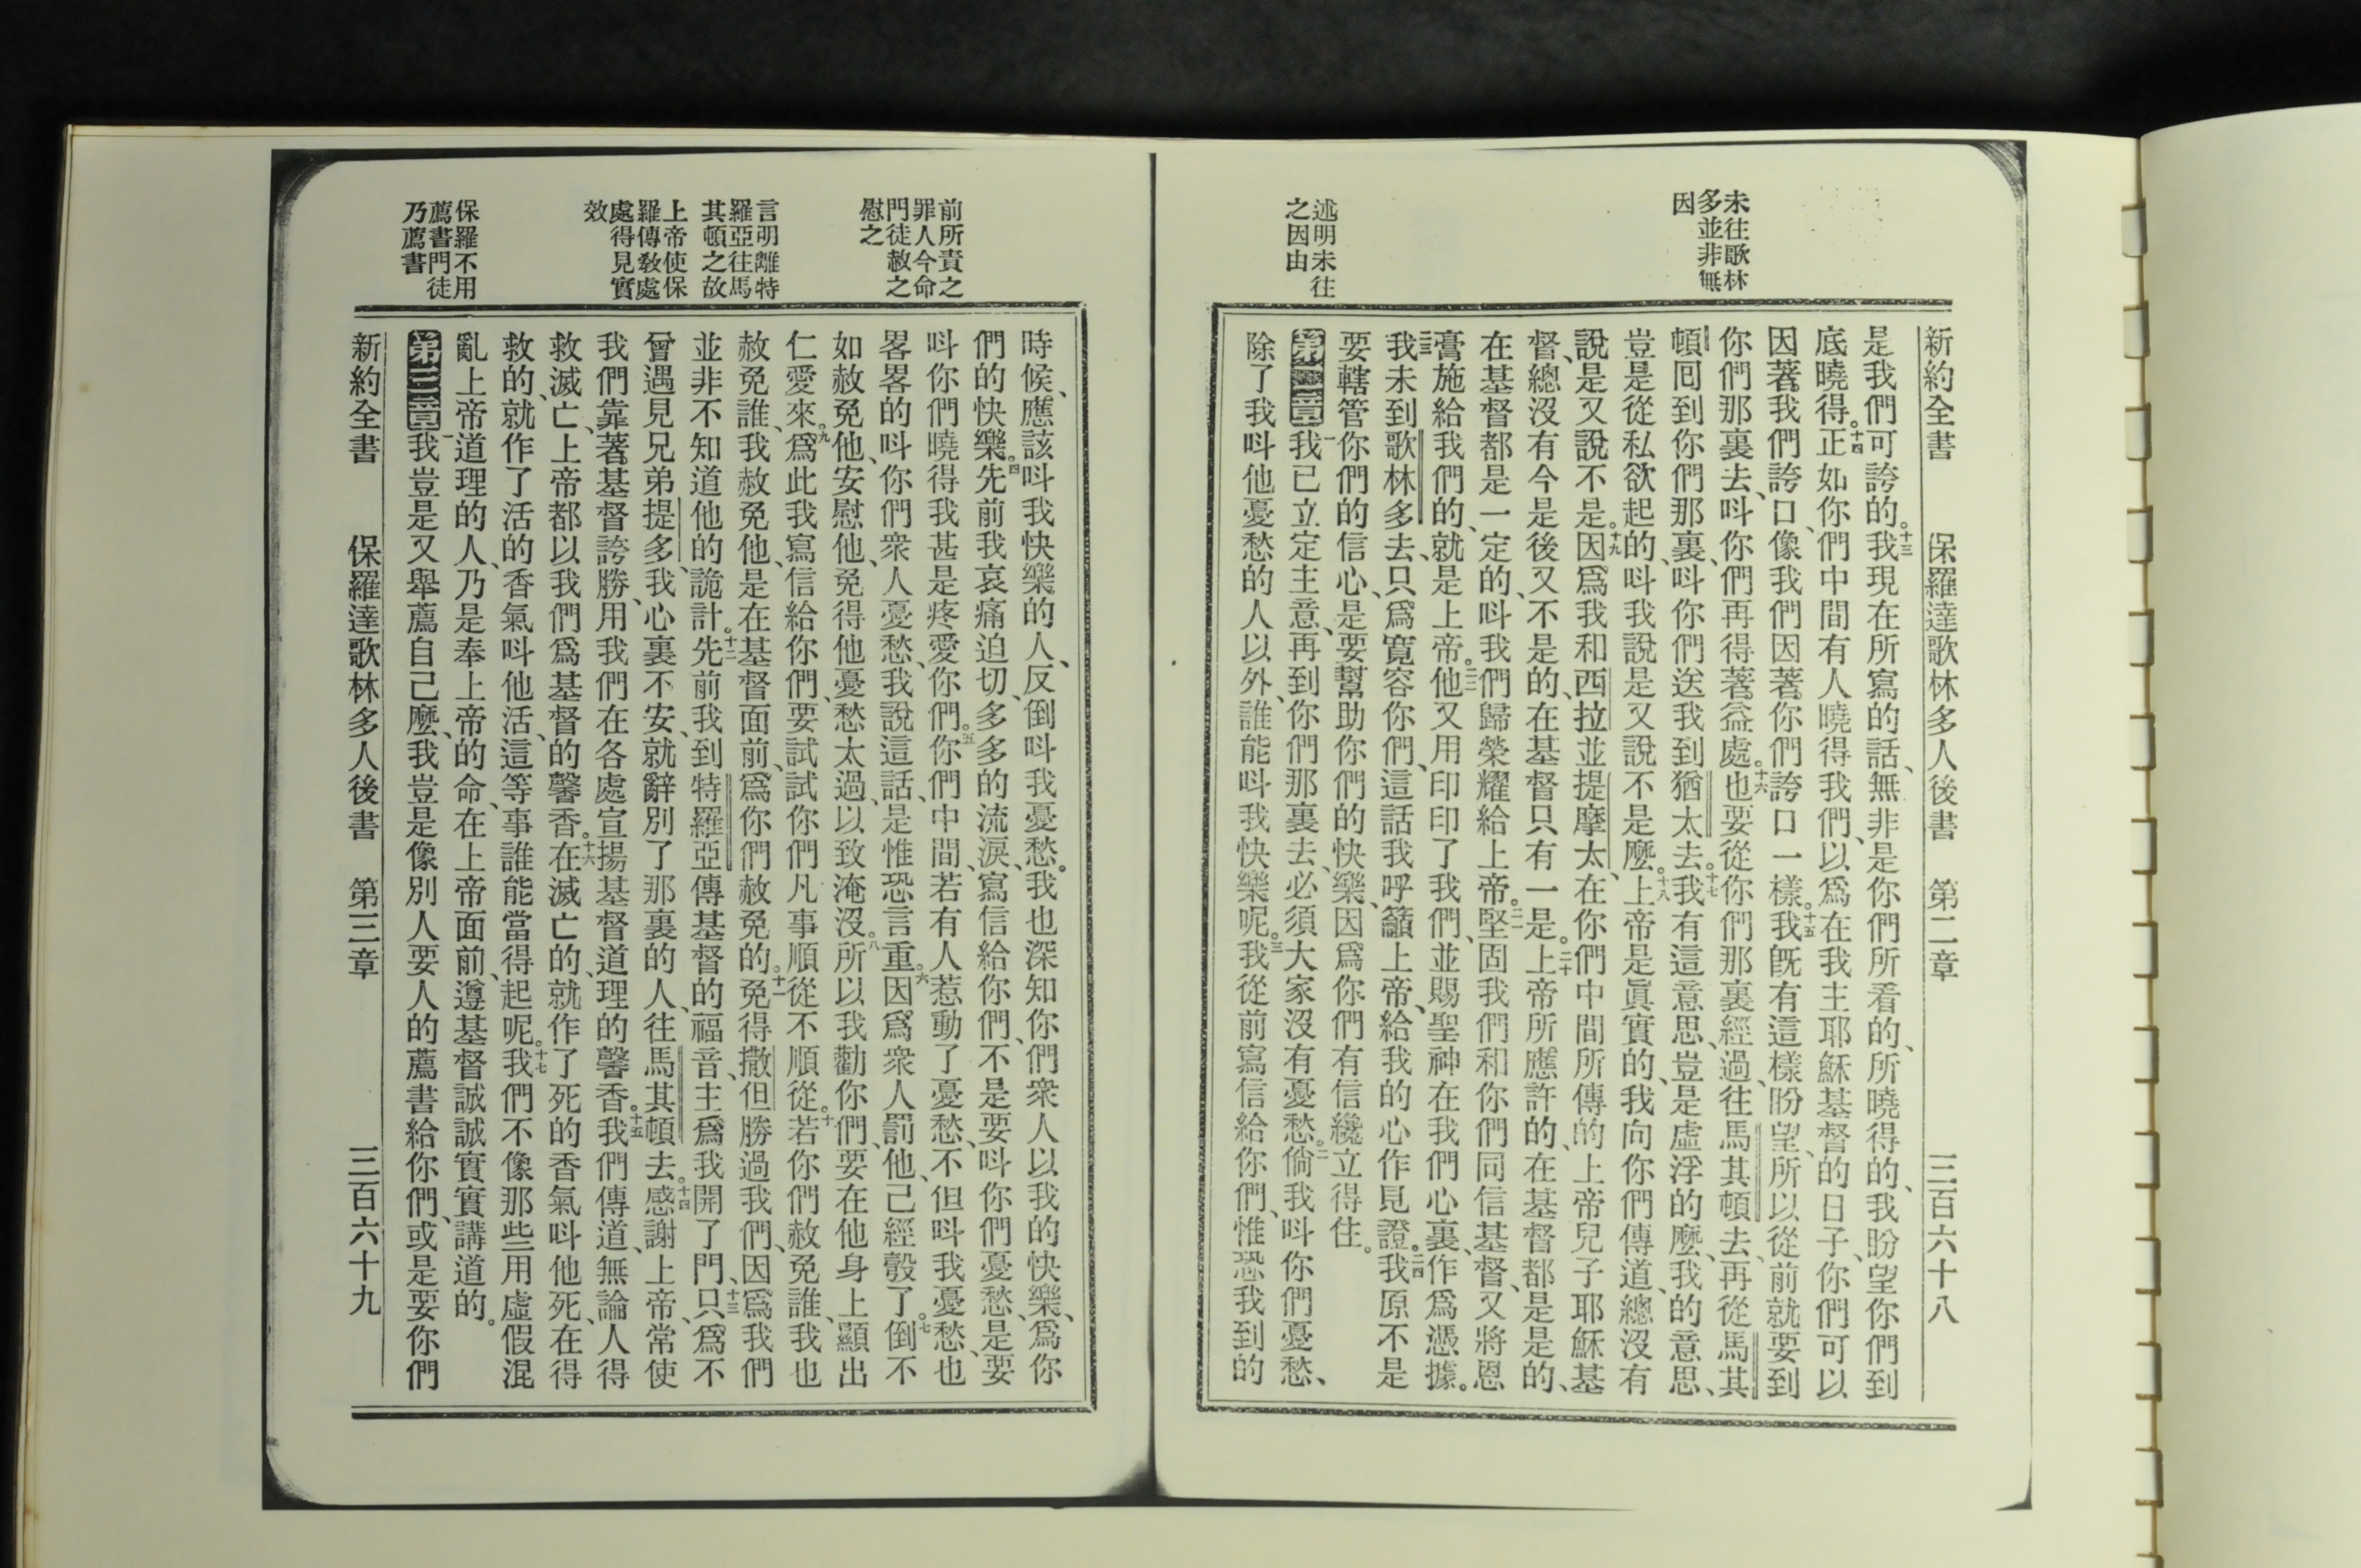 未往歌林
多並非無
因
述明未往
之因由
新約全書 保羅達歌林多人後書 第二章 三百六十八
是我們可誇的。十三我現在所寫的話、無非是你們所看的、所曉得的、我盼望你們到
底曉得。十四正如你們中間有人曉得我們、以爲在我主耶穌基督的日子、你們可以
因著我們誇口、像我們因著你們誇口一樣。十五我旣有這樣盼望、所以從前就要到
你們那裏去、呌你們再得著益處。十六也要從你們那裏經過、往馬其頓去、再從馬其
頓囘到你們那裏、呌你們送我到猶太去。十七我有這意思、豈是虛浮的麼、我的意思、
豈是從私欲起的、呌我說是又說不是麼。十八上帝是眞實的、我向你們傳道、總沒有
說是又說不是。十九因爲我和西拉並提摩太、在你們中間所傳的上帝兒子耶穌基
督、總沒有今是後又不是的、在基督只有一是。二十上帝所應許的、在基督都是是的、
在基督都是一定的、呌我們歸榮耀給上帝。二一堅固我們和你們同信基督、又將恩
膏施給我們的、就是上帝。二二他又用印印了我們、並賜聖神在我們心裏、作爲憑據。
二三我未到歌林多去、只爲寬容你們、這話我呼籲上帝、給我的心作見證。二四我原不是
要轄管你們的信心、是要幫助你們的快樂、因爲你們有信纔立得住。
第二章一我已立定主意、再到你們那裏去、必須大家沒有憂愁。二倘我呌你們憂愁、
除了我呌他憂愁的人以外、誰能呌我快樂呢。三我從前寫信給你們、惟恐我到的
前所責之
罪人今命
門徒赦之
慰之
言明離特
羅亞往馬
其頓之故
上帝使保
羅傳敎處
處得見實
效
保羅不用
薦書門徒
乃薦書
時候、應該呌我快樂的人、反倒呌我憂愁。我也深知你們衆人以我的快樂、爲你
們的快樂。四先前我哀痛迫切、多多的流淚、寫信給你們、不是要呌你們憂愁、是要
呌你們曉得我甚是疼愛你們。五你們中間、若有人惹動了憂愁、不但呌我憂愁、也
畧畧的呌你們衆人憂愁、我說這話、是惟恐言重。六因爲衆人罰他、已經彀了。七倒不
如赦免他、安慰他、免得他憂愁太過、以致淹沒。八所以我勸你們、要在他身上顯出
仁愛來。九爲此我寫信給你們、要試試你們凡事順從不順從。十若你們赦免誰、我也
赦免誰、我赦免他、是在基督面前、爲你們赦免的。十一免得撒但勝過我們、因爲我們
並非不知道他的詭計。十二先前我到特羅亞傳基督的福音、主爲我開了門、十三只爲不
曾遇見兄弟提多、我心裏不安、就辭別了那裏的人、往馬其頓去。十四感謝上帝、常使
我們靠著基督誇勝、用我們在各處宣揚基督道理的馨香。十五我們傳道、無論人得
救滅亡、上帝都以我們爲基督的馨香。十六在滅亡的、就作了死的香氣呌他死、在得
救的、就作了活的香氣呌他活、這等事誰能當得起呢。十七我們不像那些用虛假混
亂上帝道理的人、乃是奉上帝的命、在上帝面前、遵基督誠誠實實講道的。
第三章一我豈是又舉薦自己麼、我豈是像別人要人的薦書給你們、或是要你們
新約全書 保羅達歌林多人後書 第三章 三百六十九